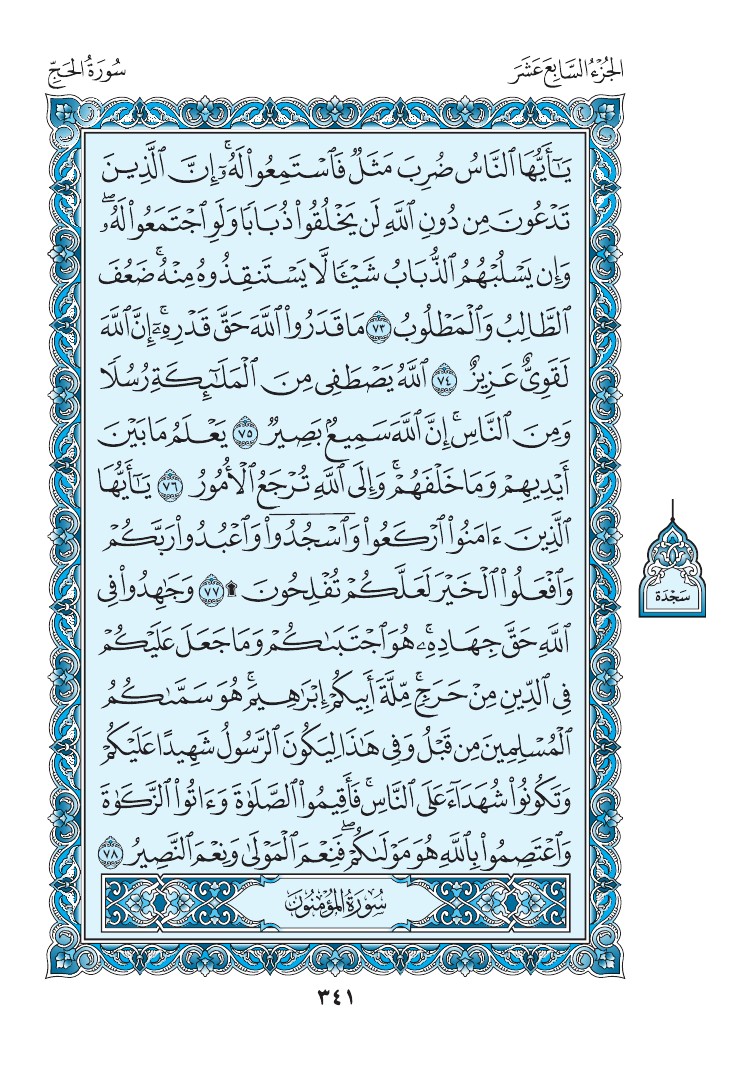 الجُزْءُ السَّابِعَ عَشَرَ
سُورَةُ الحَجِّ
يَـٰٓأَيُّهَا ٱلنَّاسُ ضُرِبَ مَثَلٌ فَٱسْتَمِعُوا۟ لَهُۥٓ ۚ إِنَّ ٱلَّذِينَ
تَدْعُونَ مِن دُونِ ٱللَّهِ لَن يَخْلُقُوا۟ ذُبَابًا وَلَوِ ٱجْتَمَعُوا۟ لَهُۥ ۖ
وَإِن يَسْلُبْهُمُ ٱلذُّبَابُ شَيْـًٔا لَّا يَسْتَنقِذُوهُ مِنْهُ ۚ ضَعُفَ
ٱلطَّالِبُ وَٱلْمَطْلُوبُ ٧٣ مَا قَدَرُوا۟ ٱللَّهَ حَقَّ قَدْرِهِۦٓ ۚ إِنَّ ٱللَّهَ
لَقَوِىٌّ عَزِيزٌ ٧٤ ٱللَّهُ يَصْطَفِى مِنَ ٱلْمَلَـٰٓئِكَةِ رُسُلًا
وَمِنَ ٱلنَّاسِ ۚ إِنَّ ٱللَّهَ سَمِيعٌۢ بَصِيرٌ ٧٥ يَعْلَمُ مَا بَيْنَ
أَيْدِيهِمْ وَمَا خَلْفَهُمْ ۗ وَإِلَى ٱللَّهِ تُرْجَعُ ٱلْأُمُورُ ٧٦ يَـٰٓأَيُّهَا
ٱلَّذِينَ ءَامَنُوا۟ ٱرْكَعُوا۟ وَٱسْجُدُوا۟ وَٱعْبُدُوا۟ رَبَّكُمْ
وَٱفْعَلُوا۟ ٱلْخَيْرَ لَعَلَّكُمْ تُفْلِحُونَ ۩ ٧٧ وَجَـٰهِدُوا۟ فِى
ٱللَّهِ حَقَّ جِهَادِهِۦ ۚ هُوَ ٱجْتَبَىٰكُمْ وَمَا جَعَلَ عَلَيْكُمْ
فِى ٱلدِّينِ مِنْ حَرَجٍ ۚ مِّلَّةَ أَبِيكُمْ إِبْرَٰهِيمَ ۚ هُوَ سَمَّىٰكُمُ
ٱلْمُسْلِمِينَ مِن قَبْلُ وَفِى هَـٰذَا لِيَكُونَ ٱلرَّسُولُ شَهِيدًا عَلَيْكُمْ
وَتَكُونُوا۟ شُهَدَآءَ عَلَى ٱلنَّاسِ ۚ فَأَقِيمُوا۟ ٱلصَّلَوٰةَ وَءَاتُوا۟ ٱلزَّكَوٰةَ
وَٱعْتَصِمُوا۟ بِٱللَّهِ هُوَ مَوْلَىٰكُمْ ۖ فَنِعْمَ ٱلْمَوْلَىٰ وَنِعْمَ ٱلنَّصِيرُ ٧٨
سُورَةُ المُؤْمِنُونَ
سَجْدَة
٣٤١